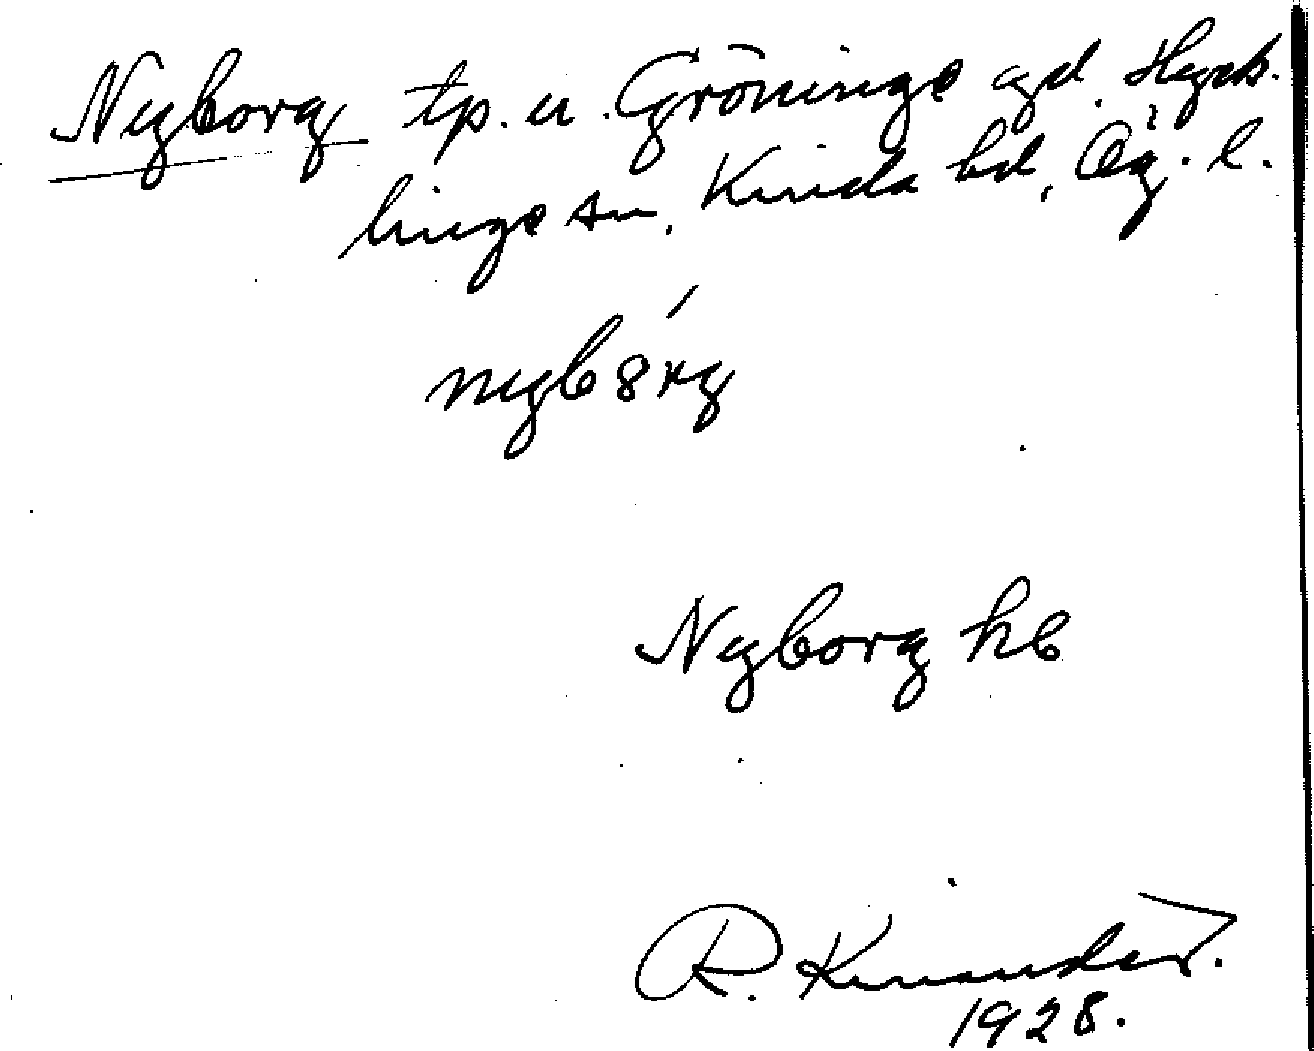 Nyborg tp. u. Gröninge gd. Hyck-
linge sn, Kinda hd, Ög. l.
nyb8rg
Nyborg hb
R. Kinander.
1928.